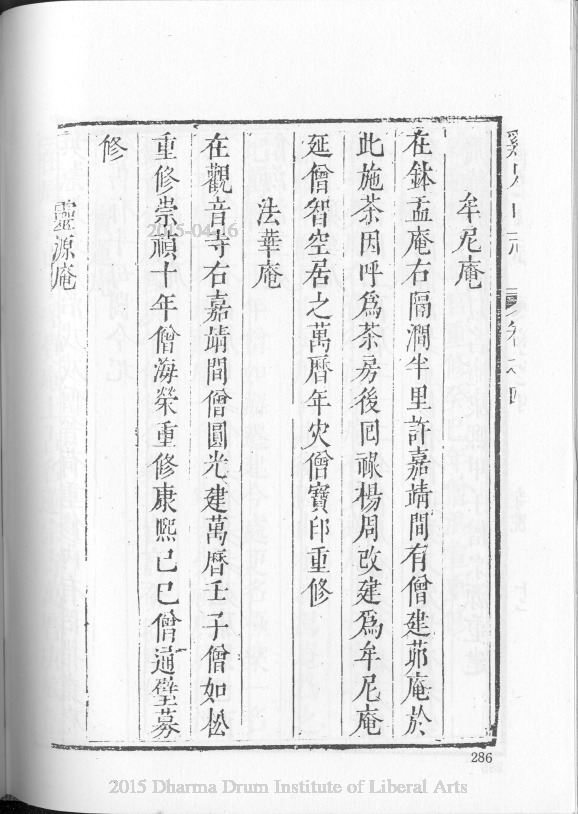 牟尼庵
在鉢盂庵右隔澗半里許嘉靖間有僧建茆庵於
此施茶因呼爲茶房後囘祿楊周改建爲牟尼庵
延僧智空居之萬曆年灾僧寶印重修
法華庵
在觀音寺右嘉靖間僧圓光建萬曆壬子僧如松
重修崇禎十年僧海榮重修康熙己巳僧通璧募
修
靈源庵
286
2015-04-16
2015 Dharma Drum Institute of Liberal Arts